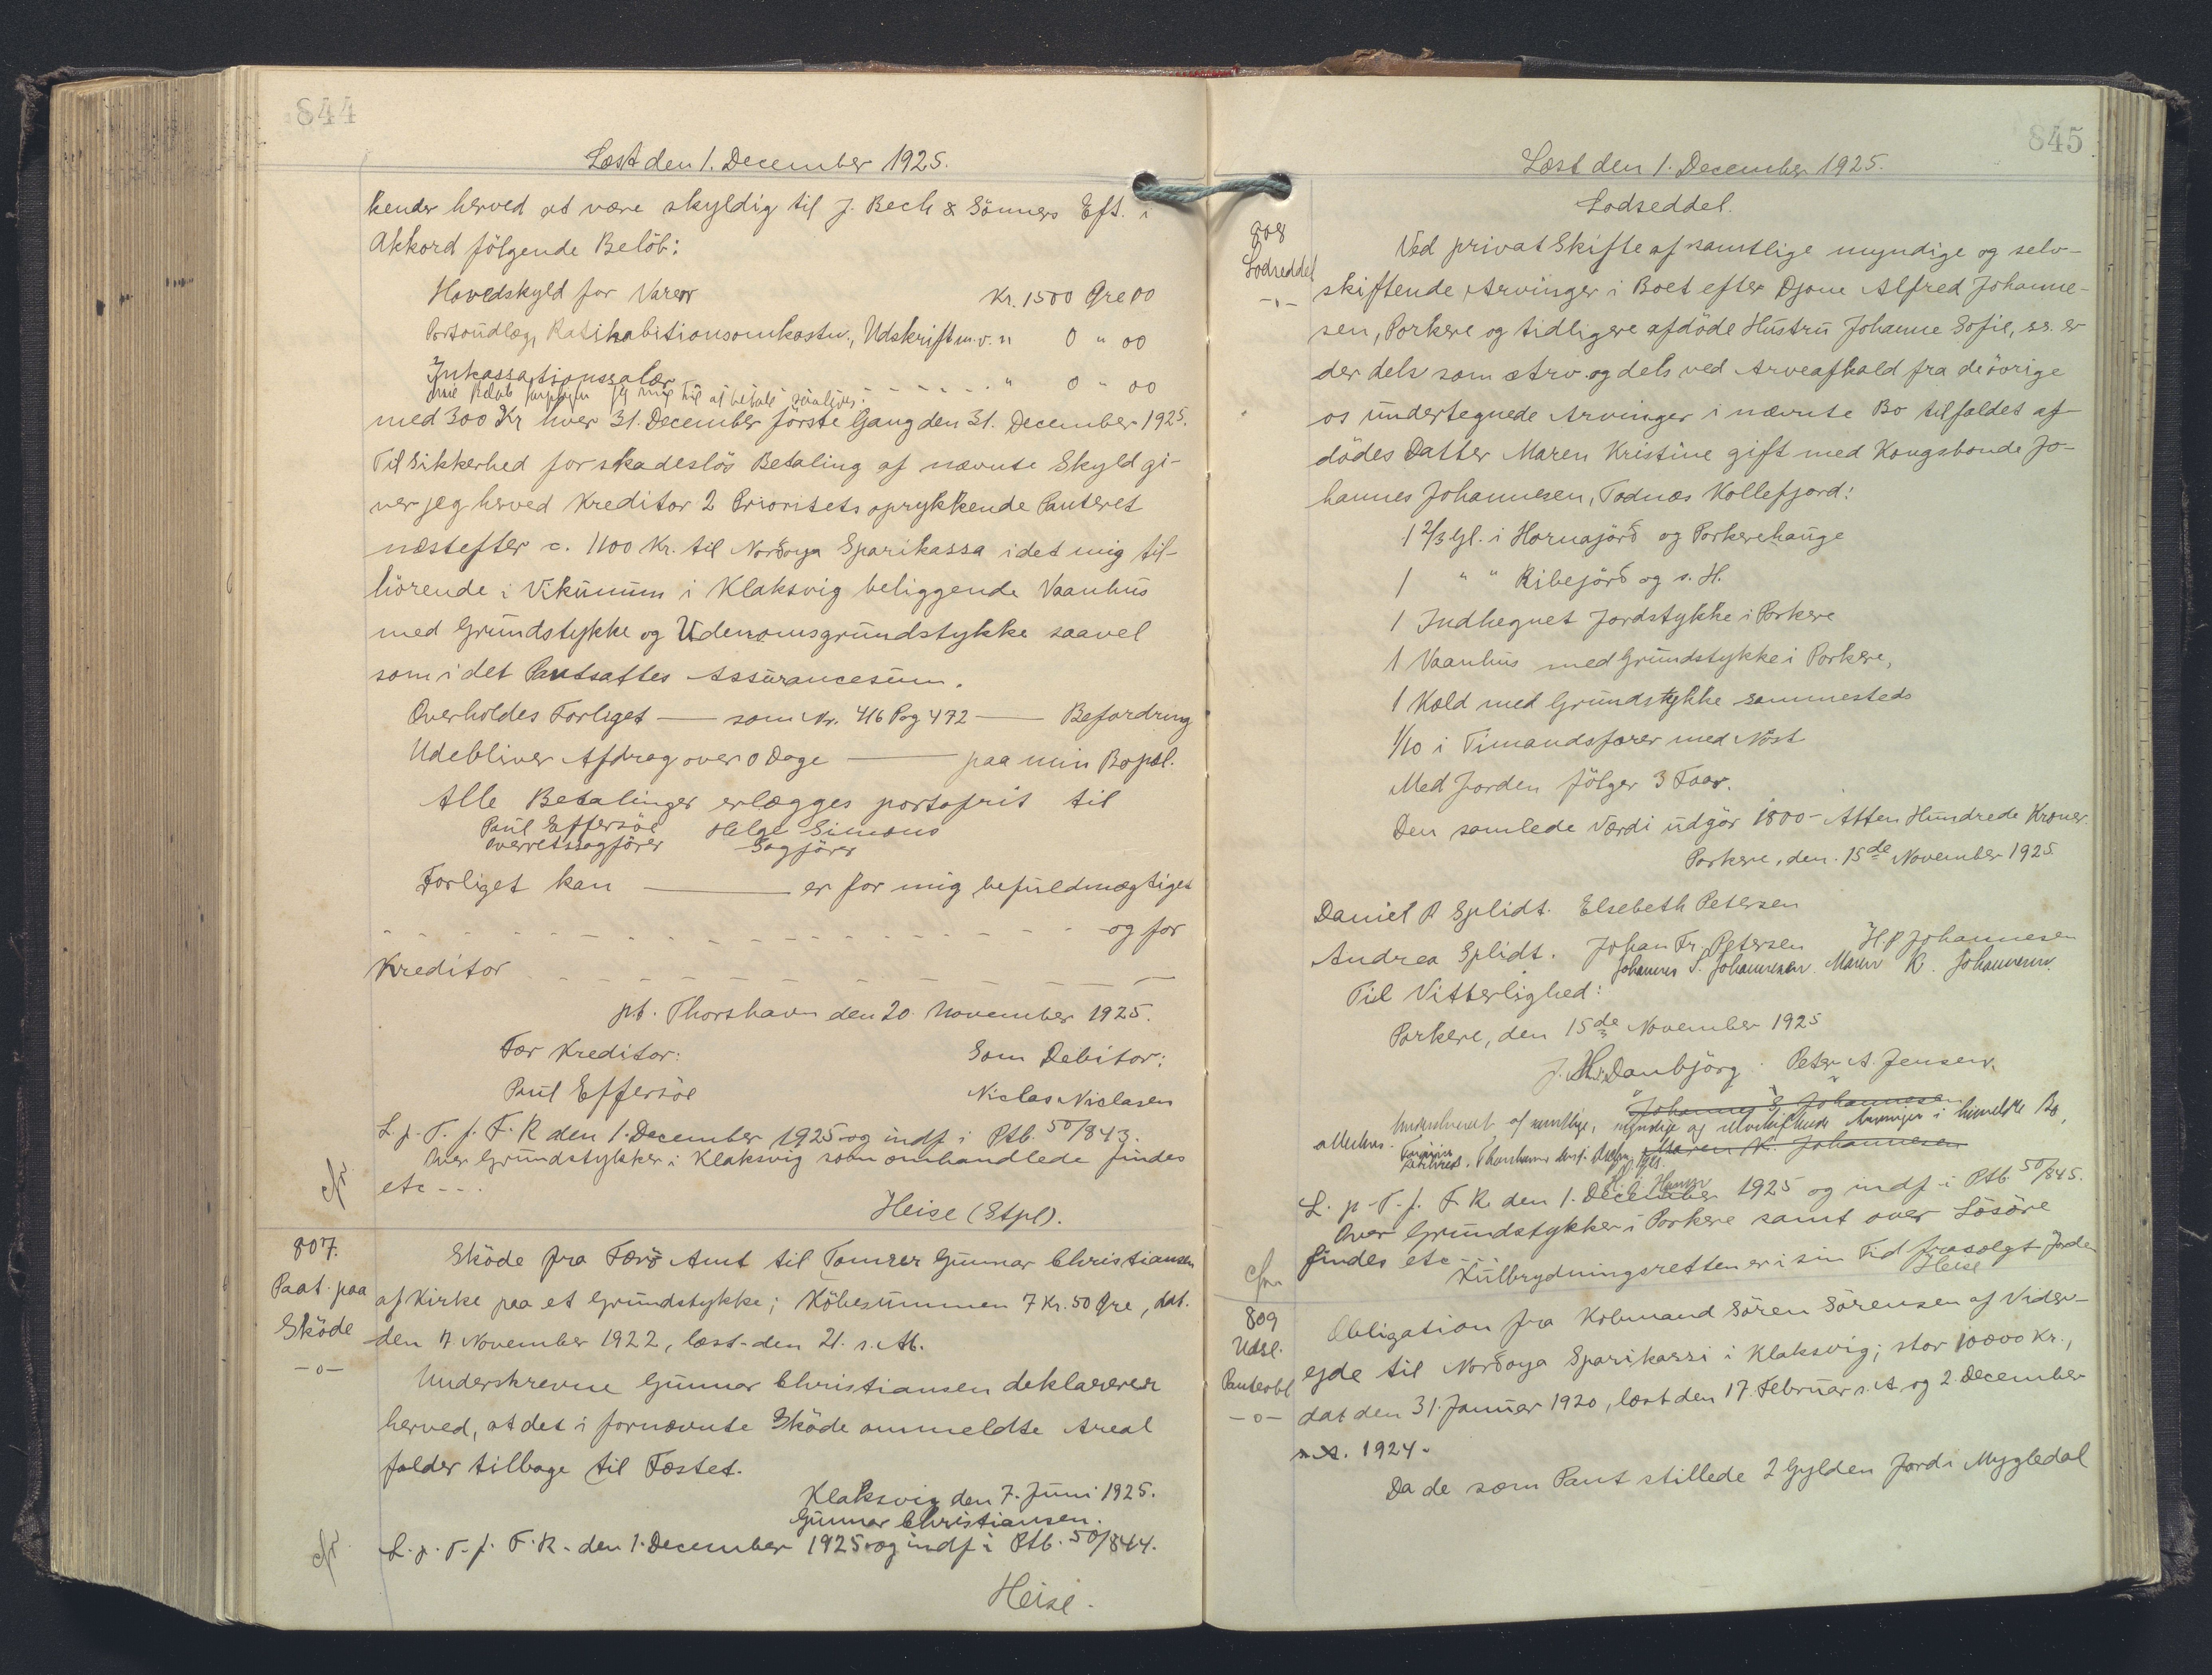 844
Læst den 1. December 1925.
kender herved at være skyldig til J. Bech & Sönners Eft. i
Akkord fölgende Belöb:
Hovedskyld for Varer Kr. 1500 Øre 00
Portoudlæg, Ratihabitionsomkostn., Udskrift m.v. " 0 " 00
Inkassationssalær " 0 " 00
Belöb jeg mig til at betale saaledes:
med 300 Kr hver 31. December förste Gang den 31. December 1925.
Til Sikkerhed for skadeslös Betaling af nævnte Skyld gi-
ver jeg herved Kreditor 2 Prioritets oprykkende Panteret
næstefter c. 1100 Kr. til Norðoya Sparikassa i det mig til-
hörende i Vikunum i Klaksvig beliggende Vaanhus
med Grundstykke og Udenomsgrundstykke saavel
som i det Pantsattes Assurancesum.
Overholdes Forliget — som Nr. 416 Pag 472 — Befordring
Udebliver Afdrag over 0 Dage — paa min Bopæl.
Alle Betalinger erlægges portofrit til
Paul Effersöe Helge Simons
Overretssagförer Sagförer
Forliget kan — er for mig befuldmægtiget
- - - - og for
Kreditor - - - -
pt. Thorshavn den 20 November 1925.
For Kreditor: Som Debitor:
Paul Effersöe Niclas Niclasen
L. p. T. f. F. R den 1. December 1925 og indf i Ptb. 50/843.
Over Grundstykker i Klaksvig som omhandlede findes
etc - - .
Heise (Stpl).
807.
Paat. paa
Sköde
-o-
Sköde fra Færö Amt til Tömrer Gunnar Christiansen
af Kirke paa et Grundstykke; Köbesummen 7 Kr. 50 Øre, dat.
den 7. November 1922, læst den 21. s. M.
Underskrevne Gunnar Christiansen deklarerer
herved, at det i fornævnte Sköde ommeldte Areal
falder tilbage til Fæstet.
Klaksvig den 7. Juni 1925.
Gunnar Christiansen.
L. p. T. f. F. R. den 1. December 1925 og indf i Ptb. 50/844.
Heise.
845
Læst den 1. December 1925.
Lodseddel.
808
Lodseddel
-o-
Ved privat Skifte af samtlige myndige og selv-
skiftende Arvinger i Boet efter Djone Alfred Johanne-
sen, Porkere og tidligere afdöde Hustru Johanne Sofie, er
der dels som Arv og dels ved Arveafkald fra de övrige
os undertegnede Arvinger i nævnte Bo tilfaldet af-
dödes Datter Maren Kristine gift med Kongsbonde Jo-
hannes Johannesen, Todnæs Kollefjord:
1 2/3 Gl. i Hornajörð og Porkerehauge
1 " " Ribejörð og s. H.
1 Indhegnet Jordstykke i Porkere
1 Vaanhus med Grundstykke i Porkere,
1 Kold med Grundstykke sammesteds
1/10 i Timandsfarer med Nöst
Med Jorden fölger 3 Faar.
Den samlede Værdi udgör 1800 - Atten Hundrede Kroner.
Porkere, den 15de November 1925
Daniel P Splidt. Elsebeth Petersen
Andrea Splidt. Johan Fr. Petersen H P Johannesen
Johannes S. Johannesen. Maren K. Johannesen.
Til Vitterlighed:
Porkere, den 15de November 1925
J. H. Danbjörg. Peter A. Jensen.
Johannes S Johannesen
Underskrevet af samtlige, myndige og selvskiftende Arvinger i himeldte Bo,
attesteres. Maren K. Johannesen
L. p. T. f. F. R. den 1. December 1925 og indf i Ptb. 50/845.
Over Grundstykker i Porkere samt over Lösöre
findes etc - -
Kulbrydningsretten er i sin Tid frasolgt Jorden
Heise
809
Udsl.
Panteobl
-o-
Obligation fra Kobmand Sören Sörensen af Vider-
ejde til Norðoya Sparikassi i Klaksvig; stor 10000 Kr.,
dat den 31. Januar 1920, læst den 17. Februar s. A og 2. December
1924.
Da de som Pant stillede 2 Gylden Jord i Mygledal